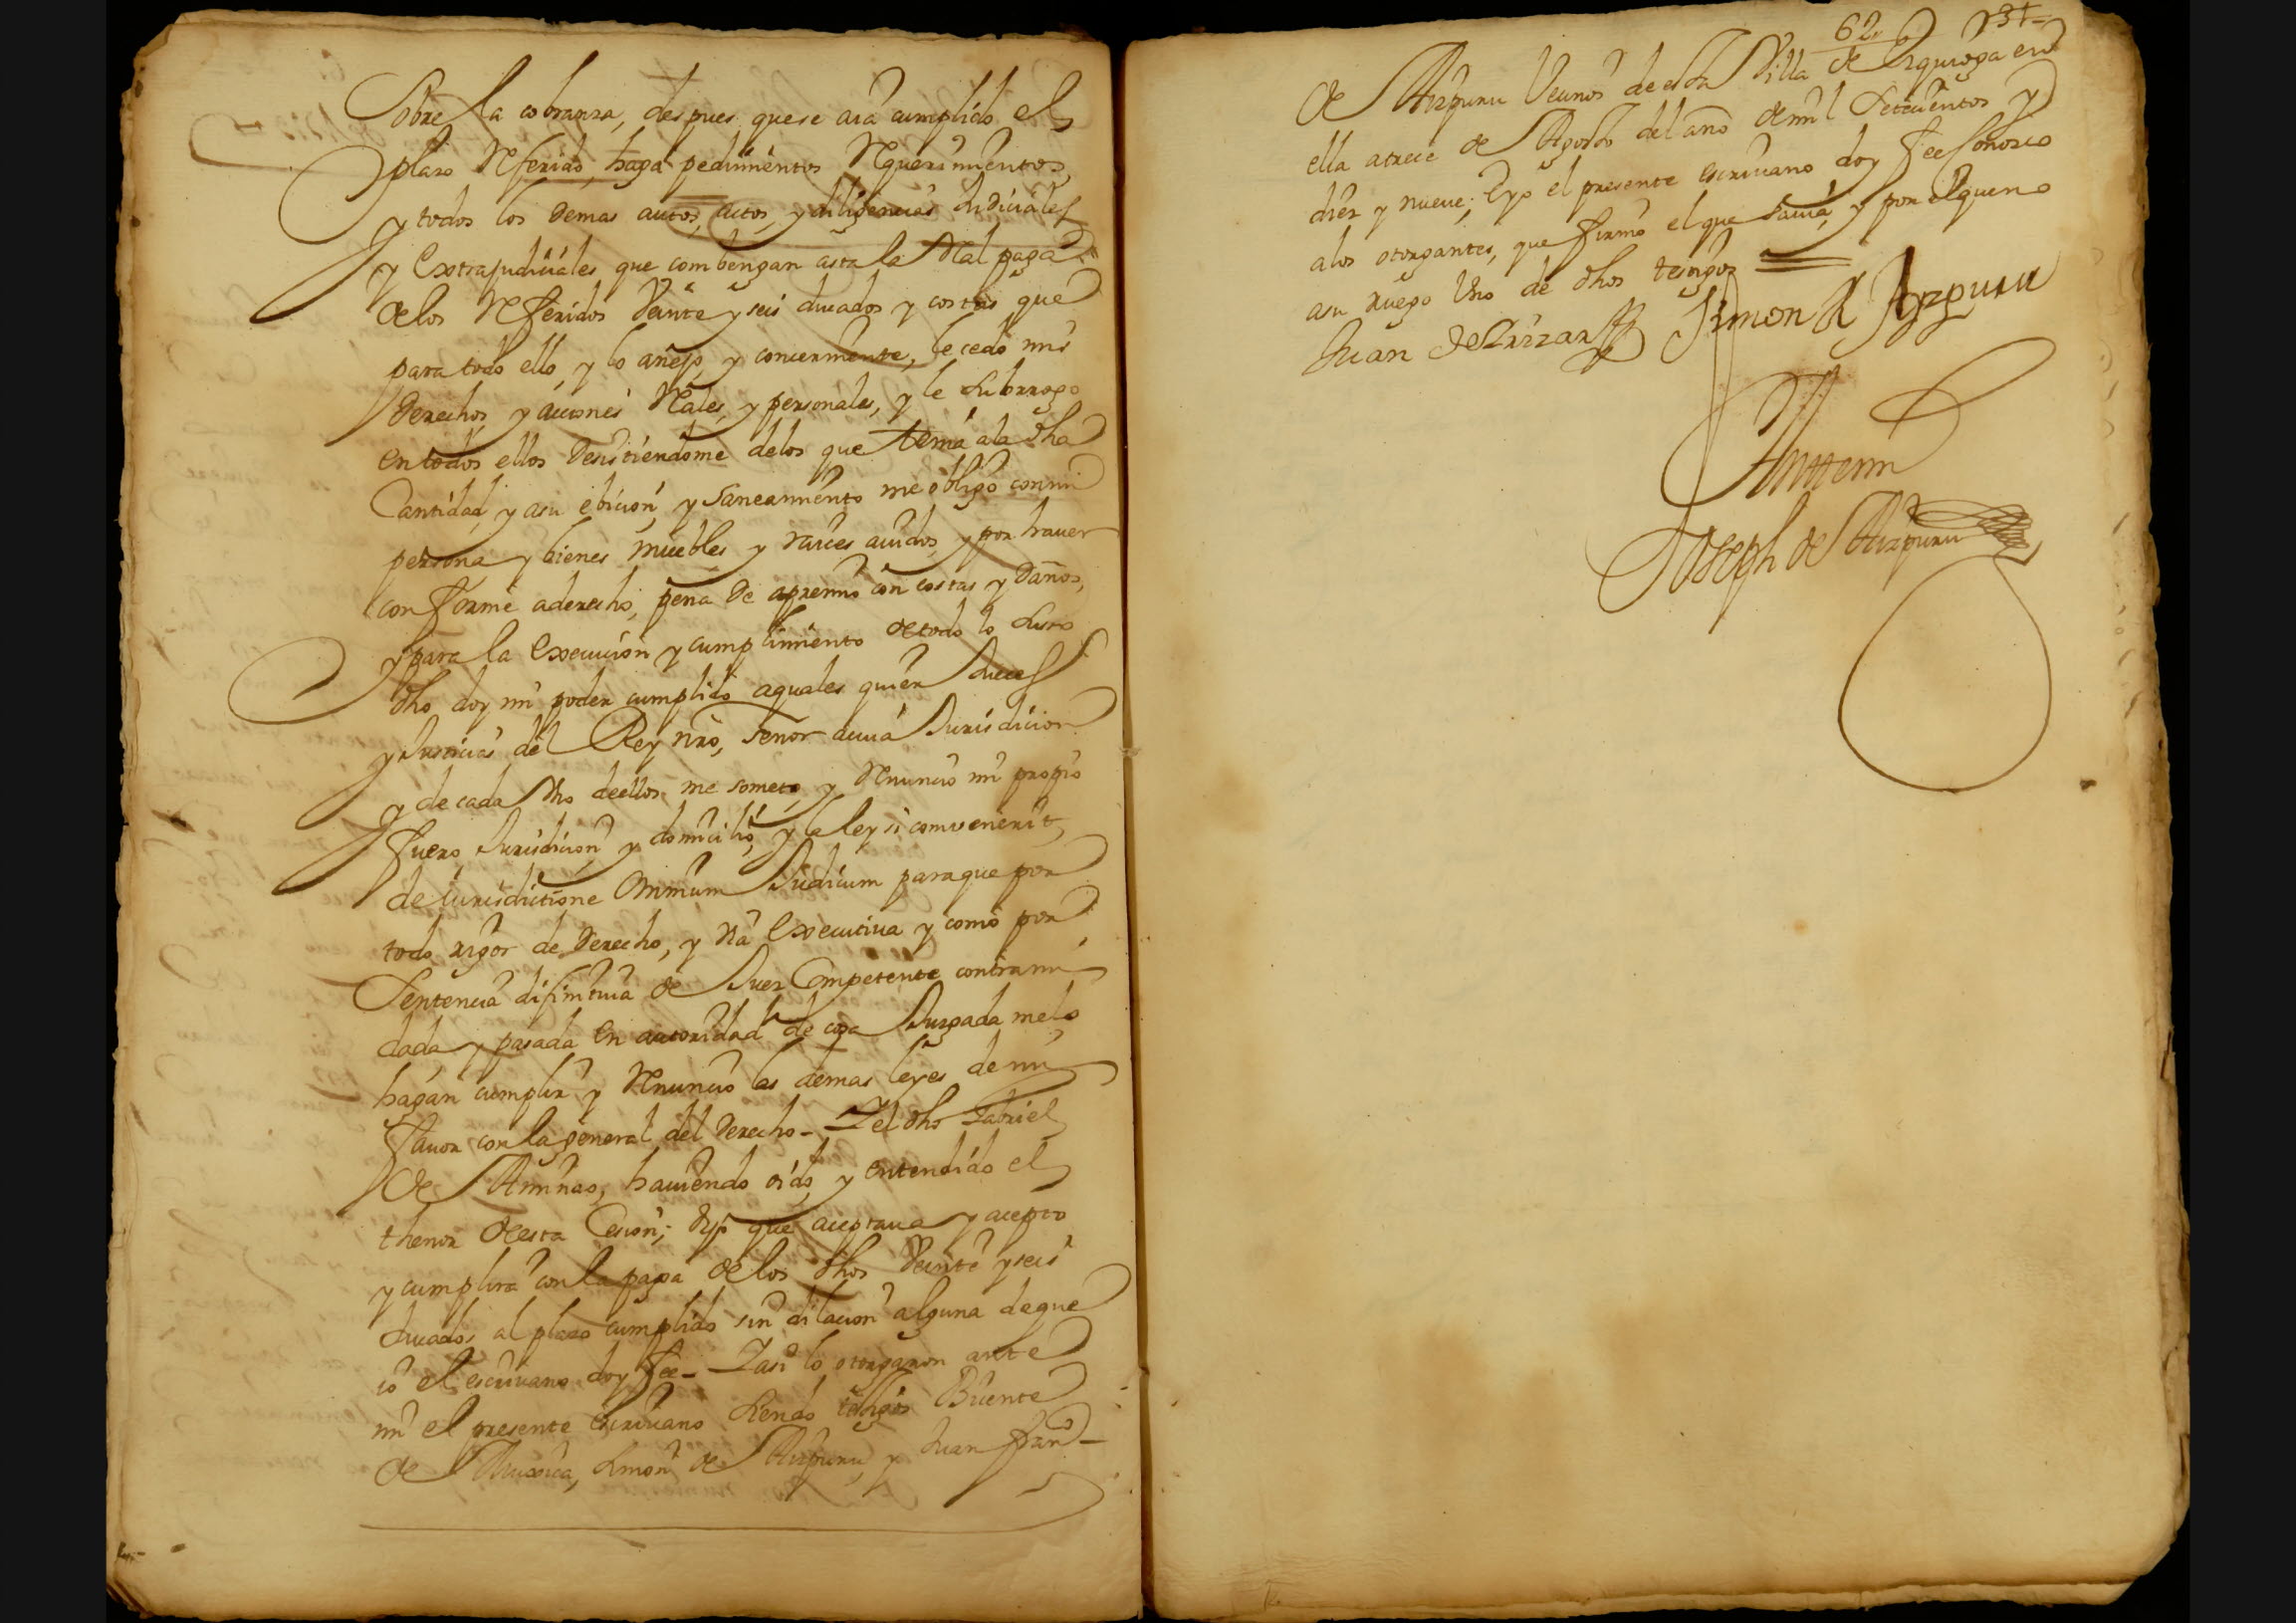 Sobre la cobranza, despues que se aia cumplido el
plazo Referido, haga pedimentos Requerimientos,
y todos los demas autos, actos, y diligencias Judiciales
y Extrajudiciales que combengan asta la Real paga
de los Referidos Veinte y seis ducados y costas que
para todo ello, y lo anejo, y concerniente, le cedo mis
derechos, y acciones Reales, y personales, y le Subrrogo
en todos ellos desistiendome de los que tenia a la dha
Cantidad, y a su ebicion, y Saneamiento me obligo con mi
persona y bienes muebles y raices auidos, y por hauer
conforme a derecho, pena de apremio con costas y daños,
y para la Execucion y cumplimiento de todo lo Suso
dho doy mi poder cumplido a quales quier Jueces
y Justicias del Rey nro, señor a cuia Jurisdicion
y de cada Vno de ellos me someto, y Renuncio mi propio
fuero, Jurisdicion, y domicilio, y la ley si convenerit,
de iurisdictione Omnium Judicum para que por
todo rigor de derecho, y via Executiua y como por
Sentencia difinitiua de Juez Competente contra mi
dada, y pasada en autoridad de cosa Juzgada me lo
hagan cumplir y Renuncio las demas leyes de mi
fauor con la general del derecho - Y el dho Gabriel
de hauiendo oido, y entendido el
thenor de esta Cesion; dijo que aceptaua y acepto
y cumplira con la paga de los dhos Veinte y seis
ducados al plazo cumplido sin dilacion alguna de que
io el escriuano doy fee - Y asi lo otorgaron ante
mi el presente Escriuano siendo testigos Bicente
de Muxica, Simon de Aizpuru y Juan fran
62, 131
de Aizpuru Vecinos de esta Villa de Ezquioga en
ella a trece de Agosto del año de mil Setecientos y
diez y nueue; E yo el presente escriuano doy fee Conosco
a los otorgantes, que firmo el que sauia, y por el que no
a su ruego Vno de dhos testigos
Juan de Simon de Ayzpuru
Ante mi
Joseph de Aizpuru